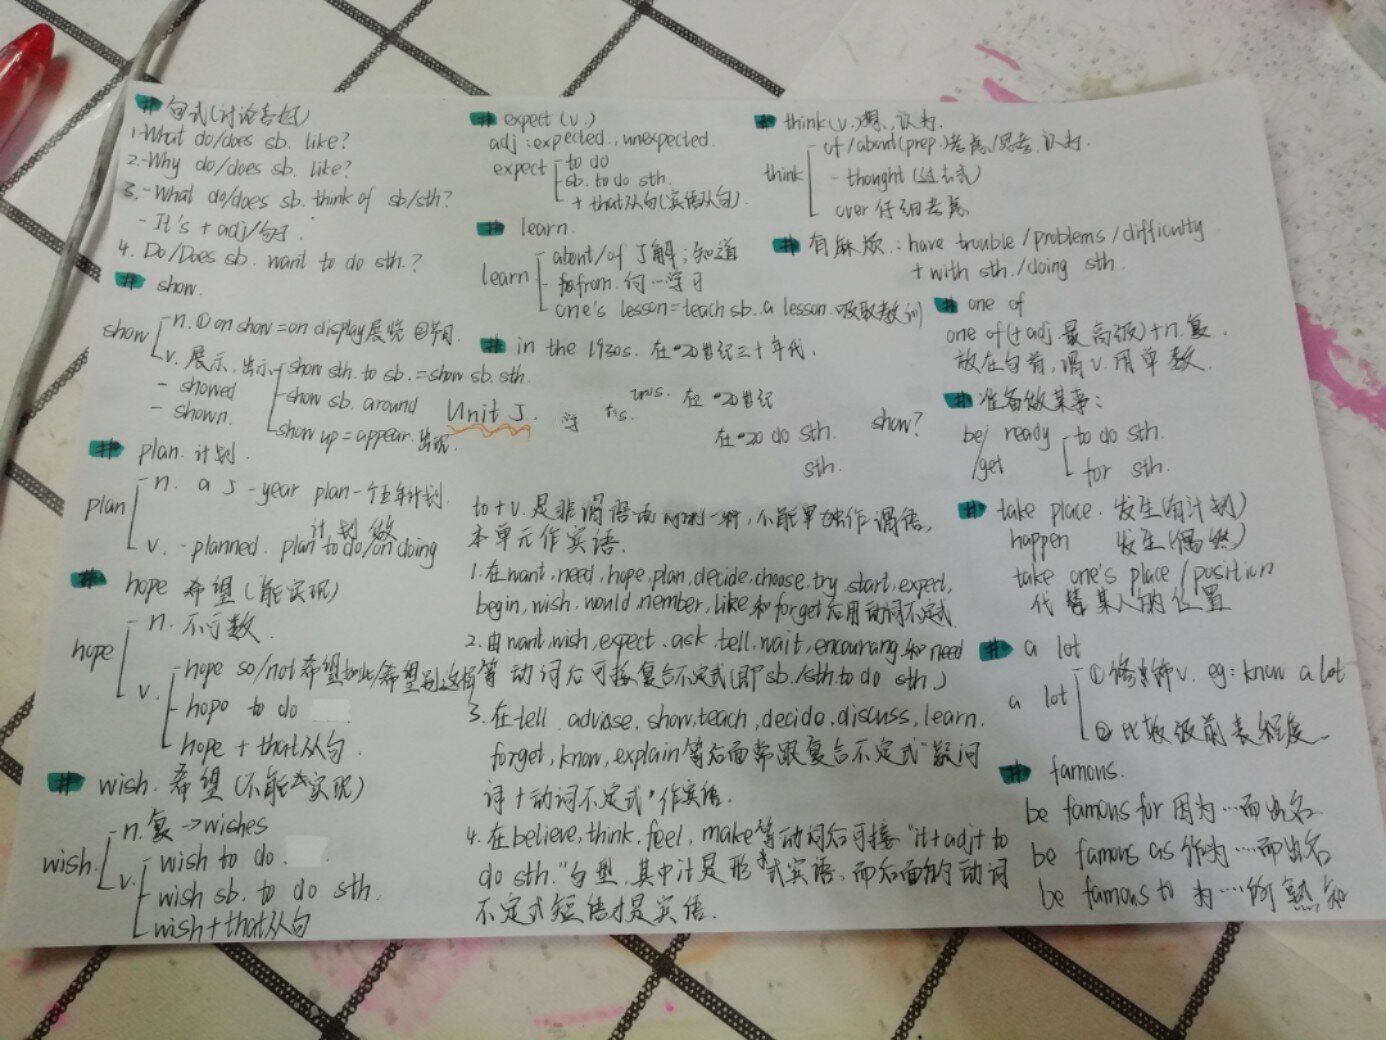 # 句式(讨论喜好)
1.-What do/does sb. like?
2.-Why do/does sb. like?
3.-What do/does sb. think of sb/sth?
- It's + adj/句子.
4. Do/Does sb. want to do sth.?
# show.
show
n. ①on show=on display展览 ②节目.
v. 展示,出示
- showed
- shown.
show sth. to sb.=show sb. sth.
show sb. around
show up=appear.出现.
# plan. 计划.
plan
n. a 5-year plan一个五年计划.
计划 做
v. -planned. plan to do/on doing
# hope 希望(能实现)
hope
n. 不可数.
v.
hope so/not希望如此/希望别这样
hope to do
hope + that从句.
# wish. 希望(不能去实现)
wish.
n.复->wishes
v.
wish to do.
wish sb. to do sth.
wish+that从句
# expect (v.)
adj:expected., unexpected.
expect
to do
sb. to do sth.
+ that从句(宾语从句).
# learn.
learn
about/of 了解;知道
from.向…学习
one's lesson=teach sb. a lesson.吸取教训
# in the 1930s. 在20世纪三十年代.
Unit 5.
在 20世纪
在 20 do sth.
sth.
show?
to+v.是非谓语 一种,不能单独作谓语,
本单元作宾语.
1.在want,need,hope,plan,decide,choose,try,start,expect,
begin,wish,would,member,like和forget后用动词不定式.
2.由want,wish,expect.ask.tell,wait,encourang.和need
等动词后可接复合不定式(即sb./sth.to do sth.)
3.在tell. adviase,show,teach,decide,discuss,learn.
forget,know,explain等后面常跟复合不定式"疑问
词+动词不定式"作宾语.
4.在believe,think.feel,make等动词后可接"it+adj+to
do sth."句型,其中it是形式宾语,而后面的动词
不定式短语才是宾语.
# think(v.)想、认为.
think
of/about(prep.)考虑/思考、认为.
- thought (过去式)
over 仔细考虑
# 有麻烦:have trouble/problems/difficulty
+ with sth./doing sth.
# one of
one of(+adj.最高级)+n.复.
放在句首,谓v.用单数.
# 准备做某事:
be/
/get
ready
to do sth.
for sth.
# take place. 发生(有计划)
happen 发生(偶然)
take one's place/position
代替某人的位置
# a lot
a lot
①修饰v. eg:know a lot
②比较级前表程度.
# famous.
be famous for 因为…而出名
be famous as 作为…而出名
be famous to 为…所熟知